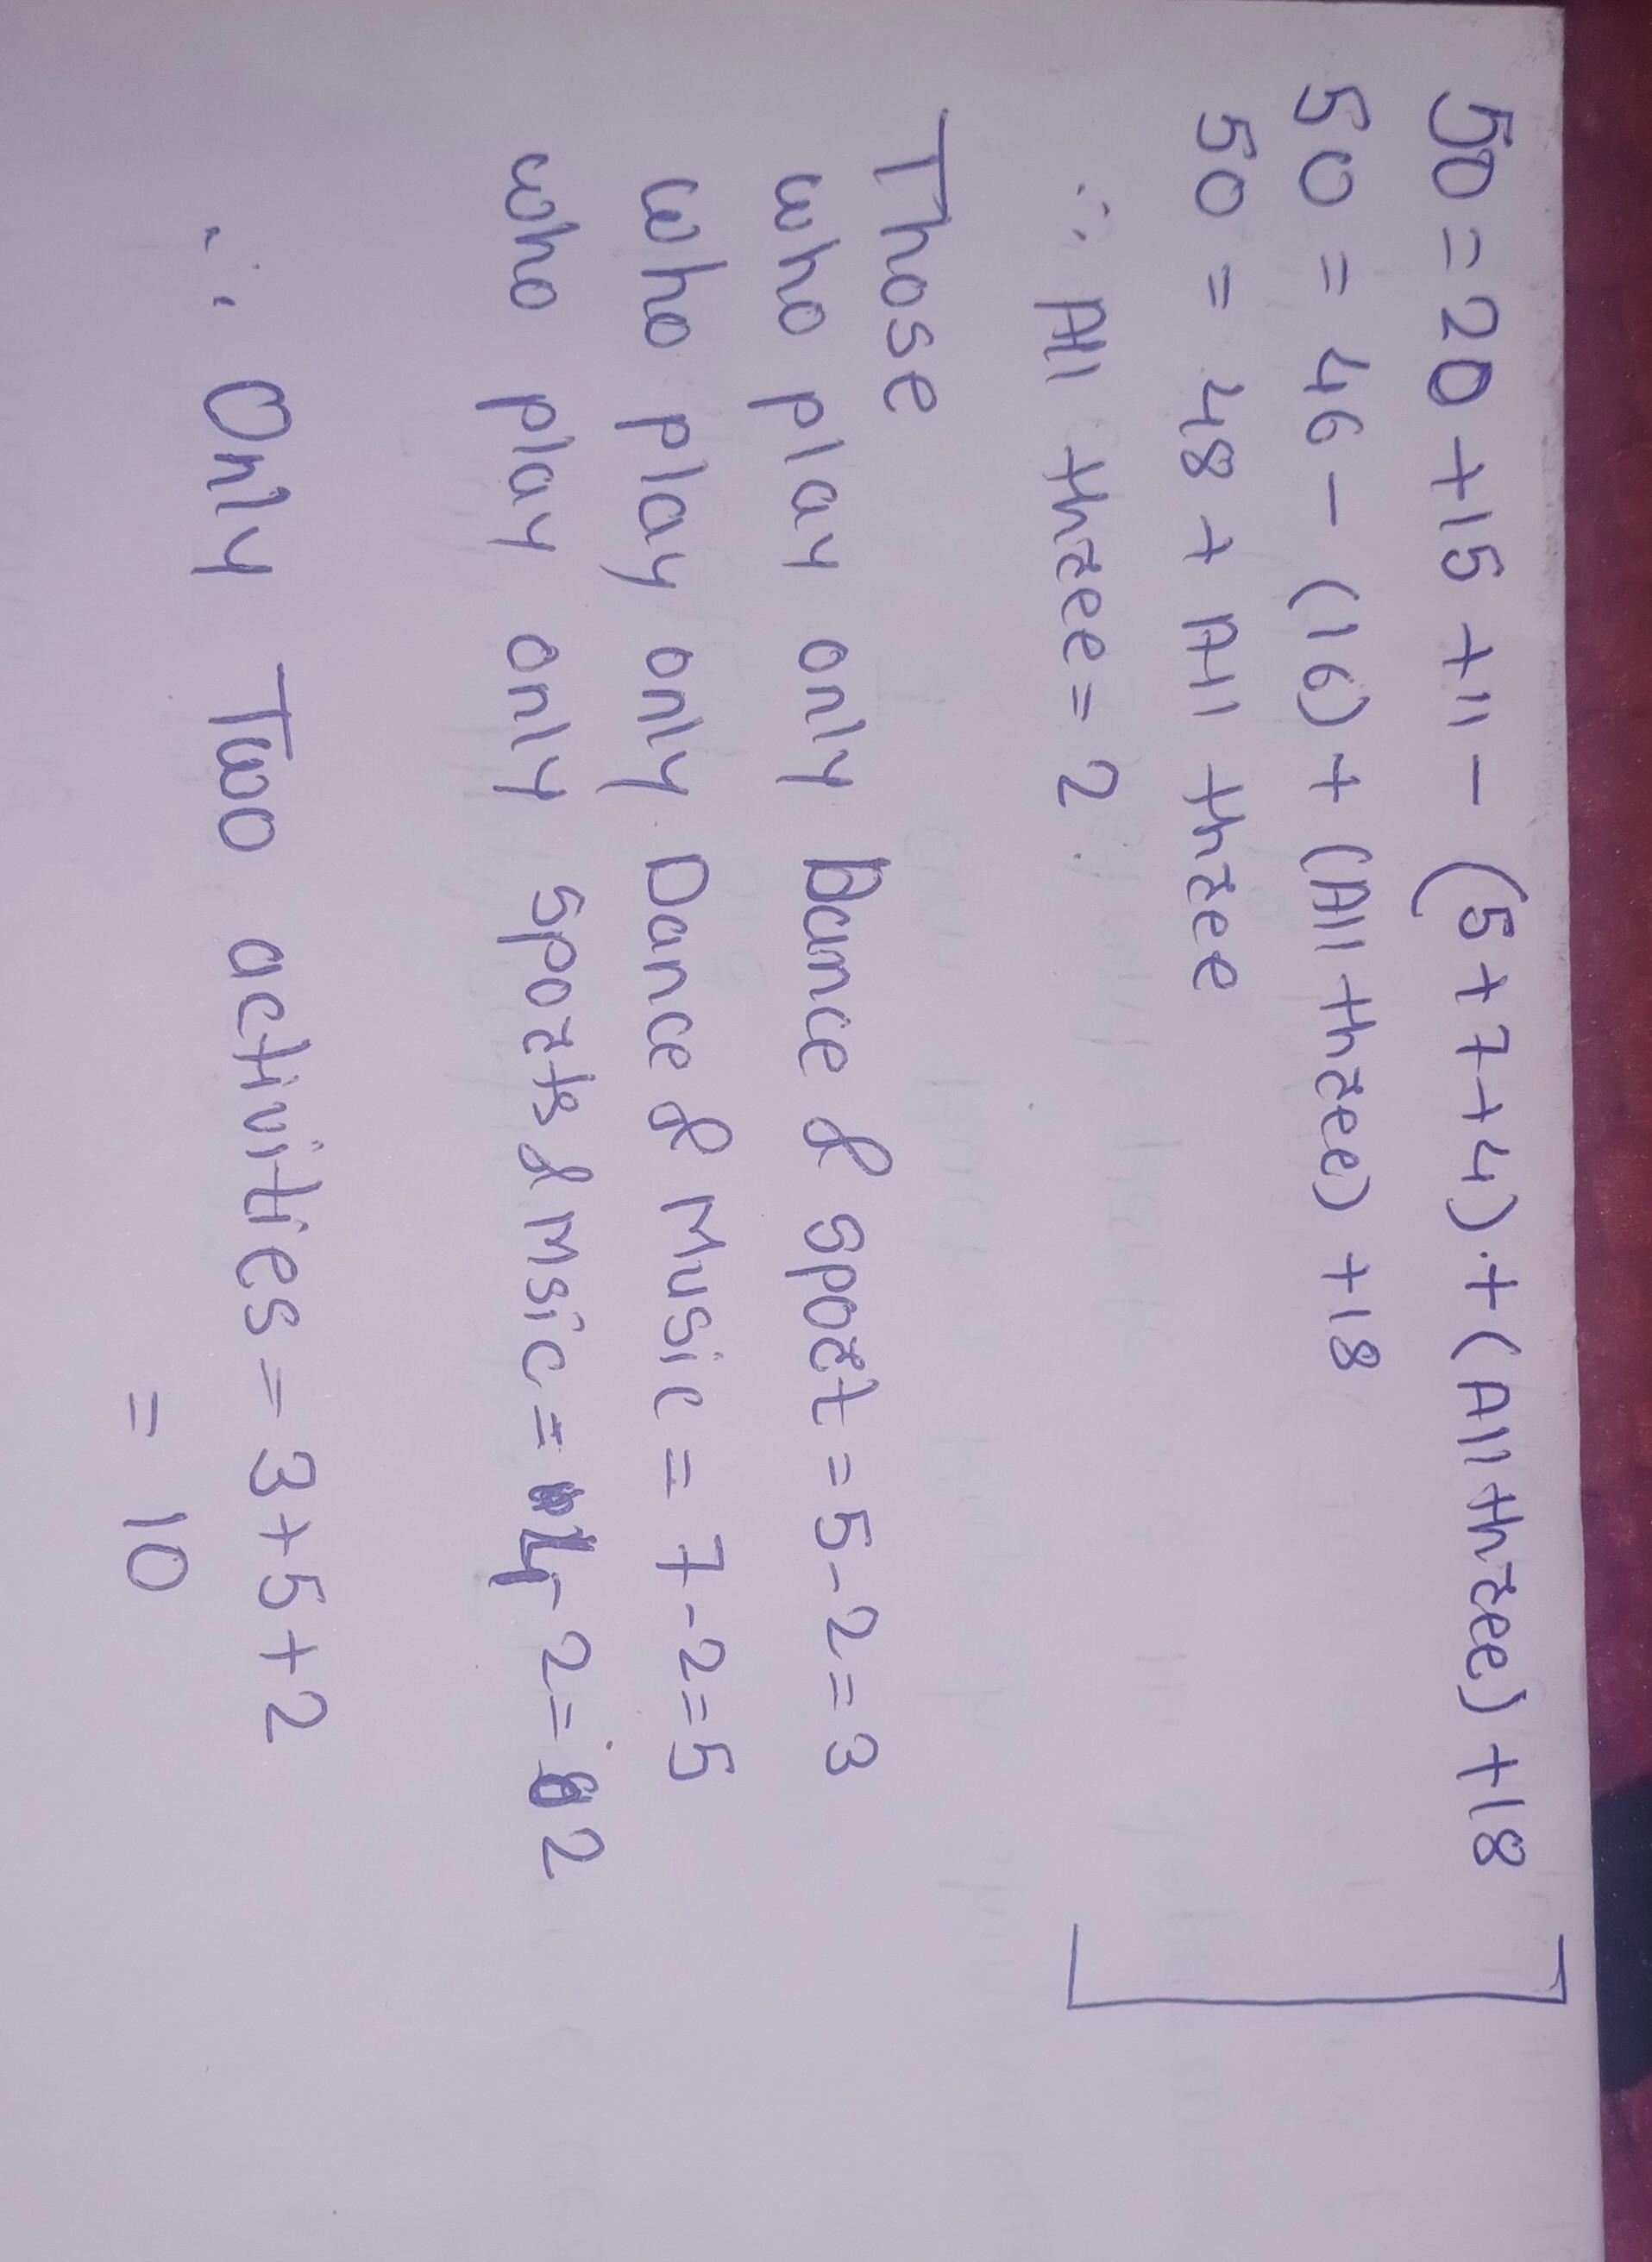 50 = 20 + 15 + 11 - (5+7+4) + (All three) + 18
50 = 46 - (16) + (All three) + 18
50 = 48 + All three
∴ All three = 2
Those
who play only Dance & sport = 5-2 = 3
who play only Dance & Music = 7-2=5
who play only sports & Msic = 4-2= 2
∴ Only Two activities = 3+5+2
= 10